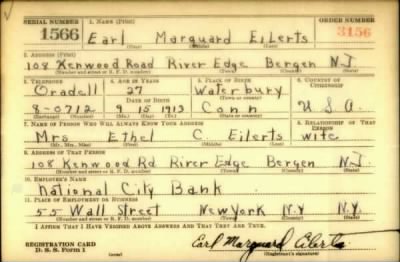 SERIAL NUMBER 1. NAME (Print) ORDER NUMBER
1566 Earl Marquard Eilerts 3156
(First) (Middle) (Last)
2. ADDRESS (Print)
108 Kenwood Road River Edge Bergen N.J.
(Number and street or R. F. D. number) (Town) (County) (State)
3. TELEPHONE 4. AGE IN YEARS 5. PLACE OF BIRTH 6. COUNTRY OF CITIZENSHIP
Oradell 27 Waterbury
(Exchange) DATE OF BIRTH (Town or county)
8-0712 9 15 1913 Conn U S A
(Number) (Mo.) (Day) (Yr.) (State or country)
7. NAME OF PERSON WHO WILL ALWAYS KNOW YOUR ADDRESS 8. RELATIONSHIP OF THAT PERSON
Mrs Ethel C. Eilerts wife
(Mr., Mrs., Miss) (First) (Middle) (Last)
9. ADDRESS OF THAT PERSON
108 Kenwood Rd River Edge Bergen N.J.
(Number and street or R. F. D. number) (Town) (County) (State)
10. EMPLOYER'S NAME
National City Bank
11. PLACE OF EMPLOYMENT OR BUSINESS
55 Wall Street New York N.Y N.Y.
(Number and street or R. F. D. number) (Town) (County) (State)
I AFFIRM THAT I HAVE VERIFIED ABOVE ANSWERS AND THAT THEY ARE TRUE.
REGISTRATION CARD
D. S. S. Form 1 (over) Earl Marquard Eilerts
(Registrant's signature)